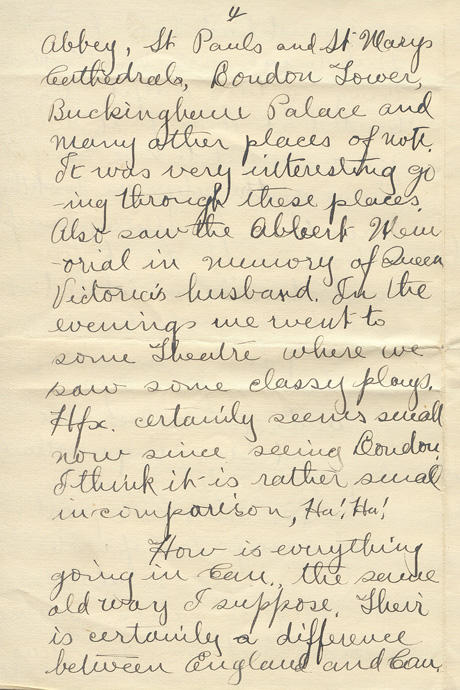 4
Abbey, St Pauls and St Marys
Cathedrals, London Tower,
Buckinghum Palace and
many other places of note.
It was very interesting go
-ing through these places.
Also saw the Abbert Mem
-orial in memory of Queen
Victoria's husband. In the
evenings we went to
some Theatre where we
saw some classy plays.
Hfx. certainly seems small
now since seeing London.
I think it is rather small
in comparison, Ha! Ha!
How is everything
going in Can., the same
old way I suppose. Their
is certainly a difference
between England and Can.